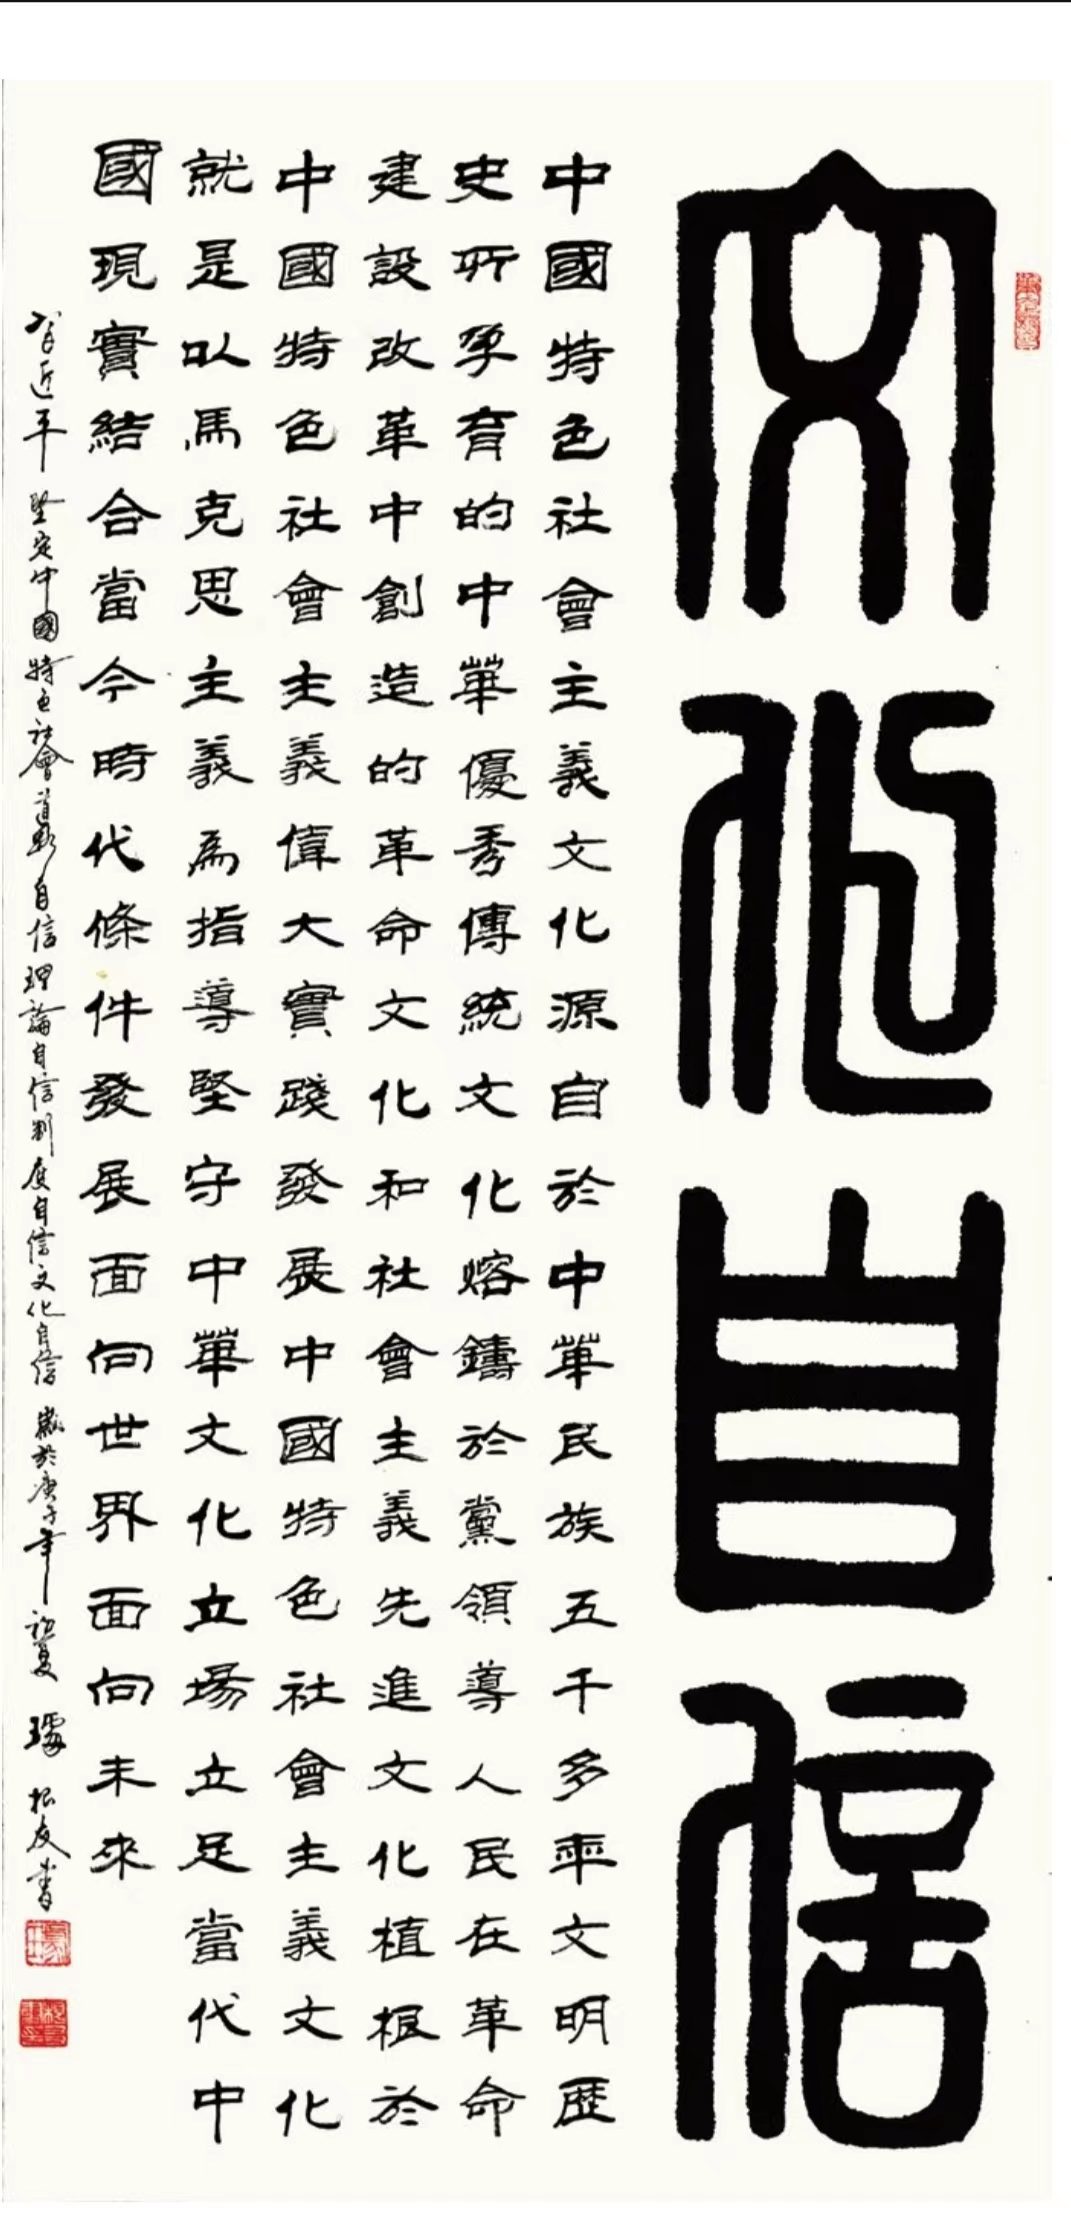 文化自信
中國特色社會主義文化源自於中華民族五千多年文明歷
史所孕育的中華優秀傳統文化熔鑄於黨領導人民在革命
建設改革中創造的革命文化和社會主義先進文化植根於
中國特色社會主義偉大實踐發展中國特色社會主義文化
就是以馬克思主義為指導堅守中華文化立場立足當代中
國現實結合當今時代條件發展面向世界面向未來
習近平 堅定中國特色社會道路自信理論自信制度自信文化自信 歲於庚子年初夏 根友書